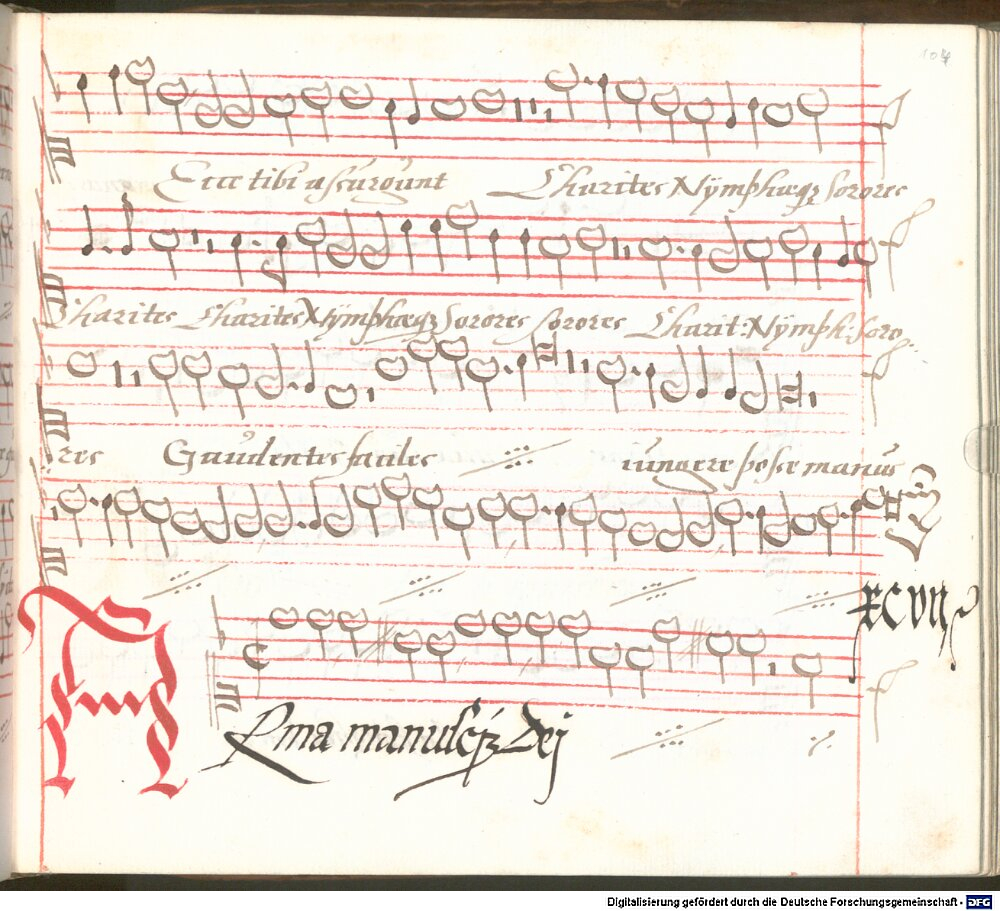 104
Ecce tibi assurgunt Charites Nÿmphæqz sorores
Charites Charites Nÿmphæqz Sorores sorores Charit: Nÿmph: soro
res Gaudentes faciles iungere posse manus
XCVII
Arma manusqz Dej
Digitalisierung gefördert durch die Deutsche Forschungsgemeinschaft - DFG